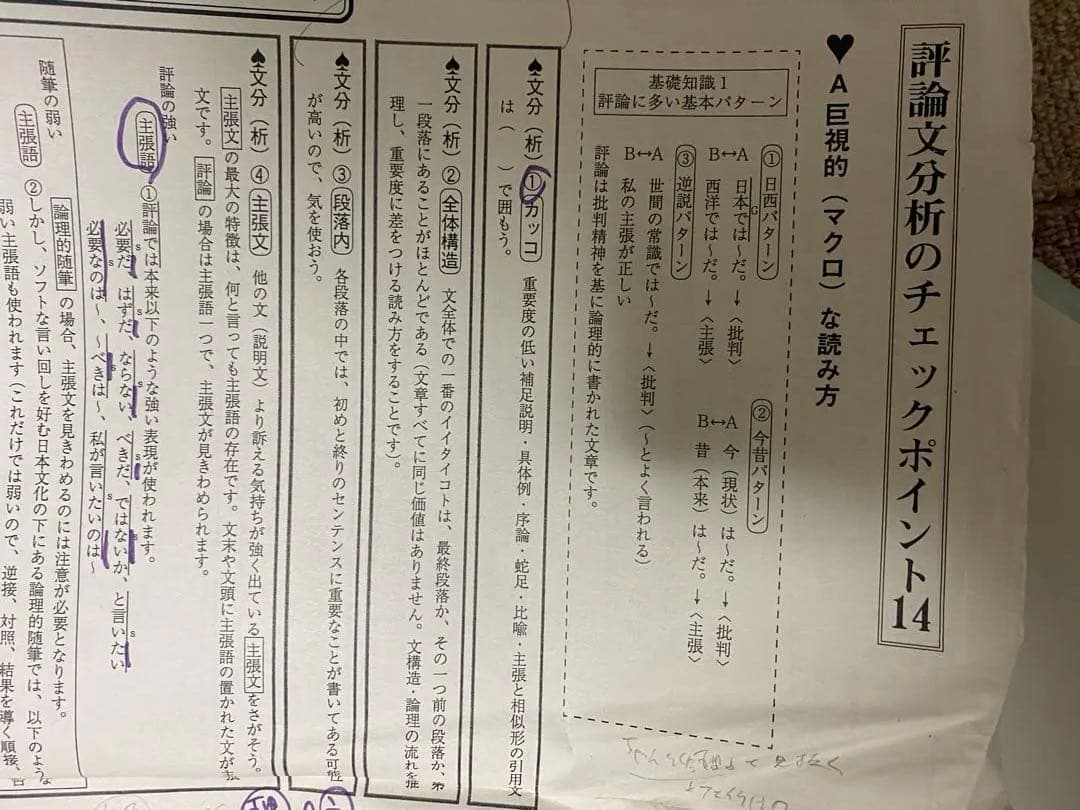 評論文分析のチェックポイント14
♥A 巨視的(マクロ)な読み方
基礎知識1
評論に多い基本パターン
①日西パターン
B↔A
日本では～だ。→〈批判〉
西洋では～だ。→〈主張〉
②今昔パターン
B↔A
今(現状)は～だ。→〈批判〉
昔(本来)は～だ。→〈主張〉
③逆説パターン
B↔A
世間の常識では～だ。→〈批判〉(～とよく言われる)
私の主張が正しい
評論は批判精神を基に論理的に書かれた文章です。
♠文分(析)①カッコ 重要度の低い補足説明・具体例・序論・蛇足・比喩・主張と相似形の引用文
は( )で囲もう。
♠文分(析)②全体構造 文全体での一番のイイタイコトは、最終段落か、その一つ前の段落か、第
一段落にあることがほとんどである(文章すべてに同じ価値はありません。文構造・論理の流れを推
理し、重要度に差をつける読み方をすることです)。
♠文分(析)③段落内 各段落の中では、初めと終りのセンテンスに重要なことが書いてある可能性
が高いので、気を使おう。
♠文分(析)④主張文 他の文(説明文)より訴える気持ちが強く出ている主張文をさがそう。
主張文の最大の特徴は、何と言っても主張語の存在です。文末や文頭に主張語の置かれた文が主
文です。評論の場合は主張語一つで、主張文が見きわめられます。
評論の強い
主張語 ①評論では本来以下のような強い表現が使われます。
必要だ、はずだ、ならない、べきだ、ではないか、と言いたい
必要なのは～、～べきは～、私が言いたいのは～
論理的随筆の場合、主張文を見きわめるのには注意が必要となります。
随筆の弱い
主張語 ②しかし、ソフトな言い回しを好む日本文化の下にある論理的随筆では、以下のような
弱い主張語も使われます(これだけでは弱いので、逆接、対照、結果を導く順接、